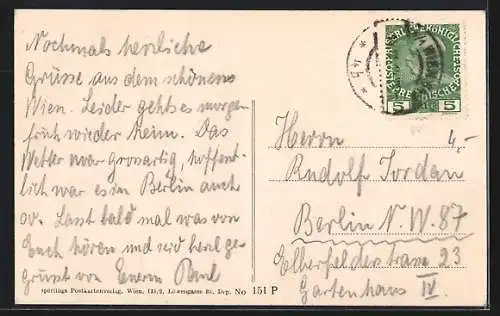 Nochmals herrliche
Grüsse aus dem schönen
Wien. Leider gehts es morgen
früh wieder heim. Das
Wetter war grosartig, hoffent-
lich war es in Berlin auch
so. Lasst bald mal was von
Euch hören und seid herzl ge-
grüsst von Eurem Paul
Postkartenverlag, Wien, III/2, Löwengasse Dep. No 151 P
5 5
4,-
Herrn
Rudolf Jordan
Berlin N.W. 87
Elberfelderstrasse 23
Gartenhaus IV.